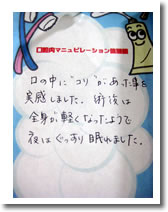 口腔内マニュピレーション体験談
口の中に"コリ"があった事を
実感しました。術後は
全身が軽くなったようで
夜はぐっすり眠れました。